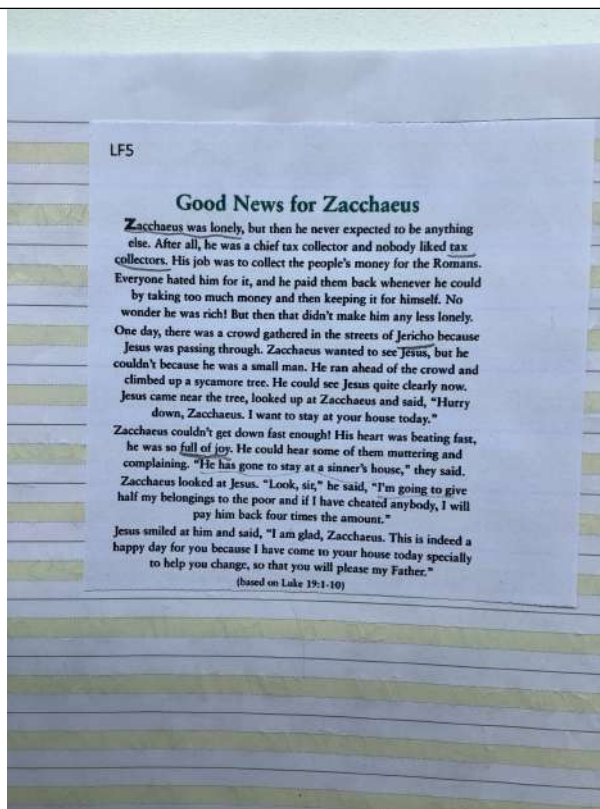 LF5
Good News for Zacchaeus
Zacchaeus was lonely, but then he never expected to be anything
else. After all, he was a chief tax collector and nobody liked tax
collectors. His job was to collect the people's money for the Romans.
Everyone hated him for it, and he paid them back whenever he could
by taking too much money and then keeping it for himself. No
wonder he was rich! But then that didn't make him any less lonely.
One day, there was a crowd gathered in the streets of Jericho because
Jesus was passing through. Zacchaeus wanted to see Jesus, but he
couldn't because he was a small man. He ran ahead of the crowd and
climbed up a sycamore tree. He could see Jesus quite clearly now.
Jesus came near the tree, looked up at Zacchaeus and said, “Hurry
down, Zacchaeus. I want to stay at your house today.”
Zacchaeus couldn't get down fast enough! His heart was beating fast,
he was so full of joy. He could hear some of them muttering and
complaining. “He has gone to stay at a sinner's house,” they said.
Zacchaeus looked at Jesus. “Look, sir,” he said, “I'm going to give
half my belongings to the poor and if I have cheated anybody, I will
pay him back four times the amount.”
Jesus smiled at him and said, “I am glad, Zacchaeus. This is indeed a
happy day for you because I have come to your house today specially
to help you change, so that you will please my Father.”
(based on Luke 19:1-10)